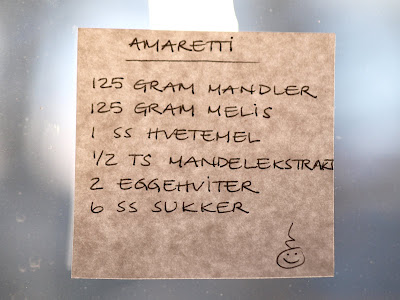 AMARETTI
125 GRAM MANDLER
125 GRAM MELIS
1 SS HVETEMEL
1/2 TS MANDELEKSTRAKT
2 EGGEHVITER
6 SS SUKKER